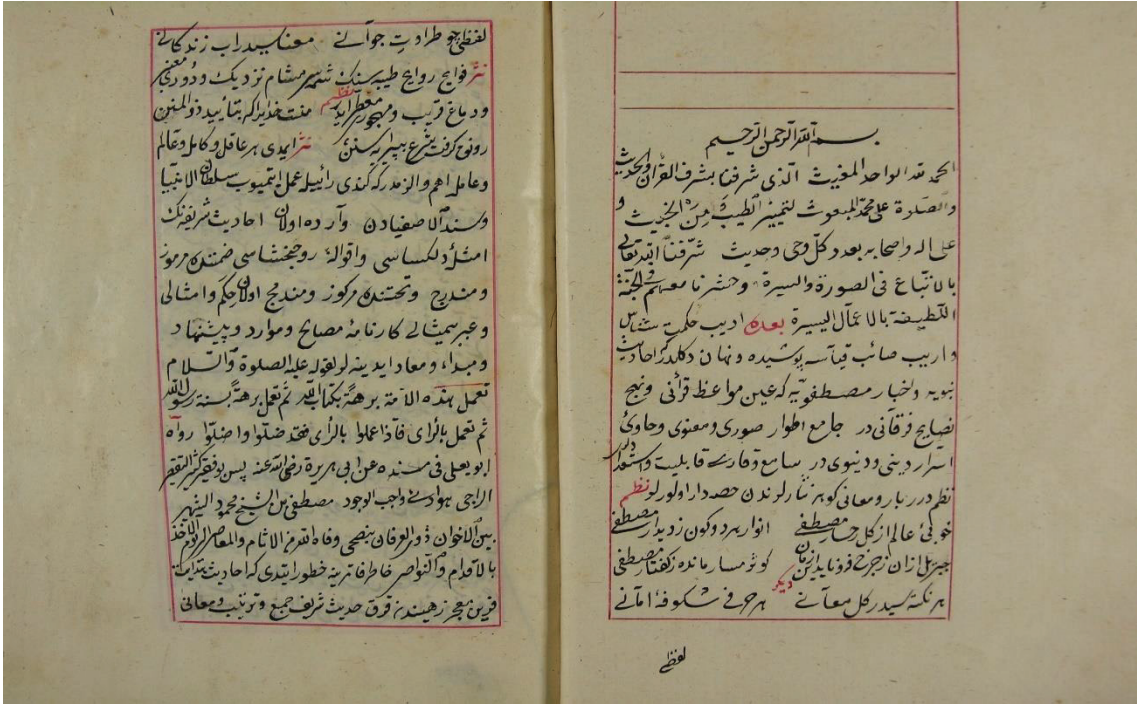 بسم الله الرحمن الرحيم
الحمد لله الواحد المغيث الذى شرفنا بشرف القرآن والحديث
والصلوة على محمد المبعوث لتمييز الطيب من الخبيث و
على اله واصحابه بعدد كل وحى وحديث شرفنا الله تعالى
بالاتباع فى الصورة والسيرة وحشرنا معهم فى الجنة
اللطيفة بالاعمال اليسيرة بعده اديب حكمت شناس
واريب صائب قياسه پوشيده ونهان دكلدركه احاديث
نبويه واخبار مصطفويه كه عين مواعظ قرآنى ونهج
نصايح فرقانى در جامع اطوار صورى ومعنوى وحاوئ
اسرار دينى ودنيوى در سامع وقارئ قابليت واستعدادلرى
نظم درر بار ومعانى كوهر نثارلرندن حصه دار اولورلر نظم
خوبئ عالم از كل رخسار مصطفى انوار هر دو كون ز ديدار مصطفى
جبريل ازان ز چرخ فرو كوثر مانده ز گفتار مصطفى
ديكر
هر نكته سيدر كل معانى هر حرفى شكوفۀ امانى
لفظى
لفظى چو طراوت جوانى معناسيدر اب زندكانى
نثر فوايح روايح طيبه سنك شمه سى مشام نزديك ودورى معنبر
ودماغ قريب ومهجورى معطر ايدر نظم منت خدايراكه بتأييد ذو المنن
رونق كرفت شرع بپيرايه سنن نثر ايمدى هر عاقل وكامل وعالم
وعامله اهم والزمدر كه كندى رائيله عمل ايتميوب سلطان الانبيا
وسند الاصفيادن وآرده اولان احاديث شريفه نك
امثلۀ دلكساسى واقوالۀ روحبخشاسى ضمننده مرموز
ومندرج وتحتنده مركوز ومندمج اولان حكم وامثالى
وعبر بيمثالى كارنامۀ مصالح وموارد وپيشنهاد
ومبداء ومعاد ايدينه لر لقوله عليه الصلوة والسلام
تعمل هذه الامة برهة بكتاب الله ثم تعمل برهة بسنة رسول الله
ثم تعمل بالرأى فاذا عملوا بالرأى فقد ضلوا واضلوا رواه
ابو يعلى فى مسنده عن ابى هريرة رضى الله عنه پس بو فقير كثير التقصير
الراجى هوادى واجب الوجود مصطفى بن الشيخ محمود الشهير
بين الاخوان ذوى العرفان بنصحى وفاه الله من الاثام والمعاصى يوم
بالاقدام والنواصى خاطر فاترينه خطور ايتدى كه احاديث
قرين معجز رهيندن قرق حديث شريف جمع وترتيب ومعانى